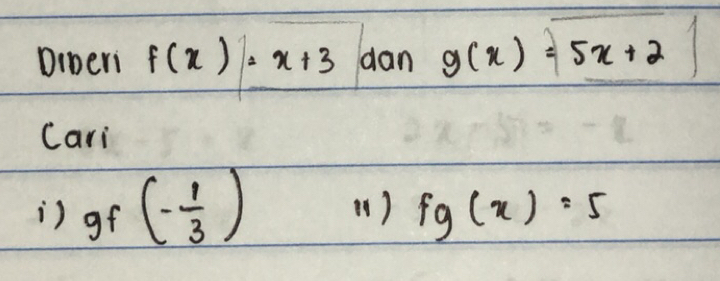 Diberi f(x) = x+3 dan g(x) = 5x+2
Cari
i) gf (-1/3) ii) fg(x) = 5